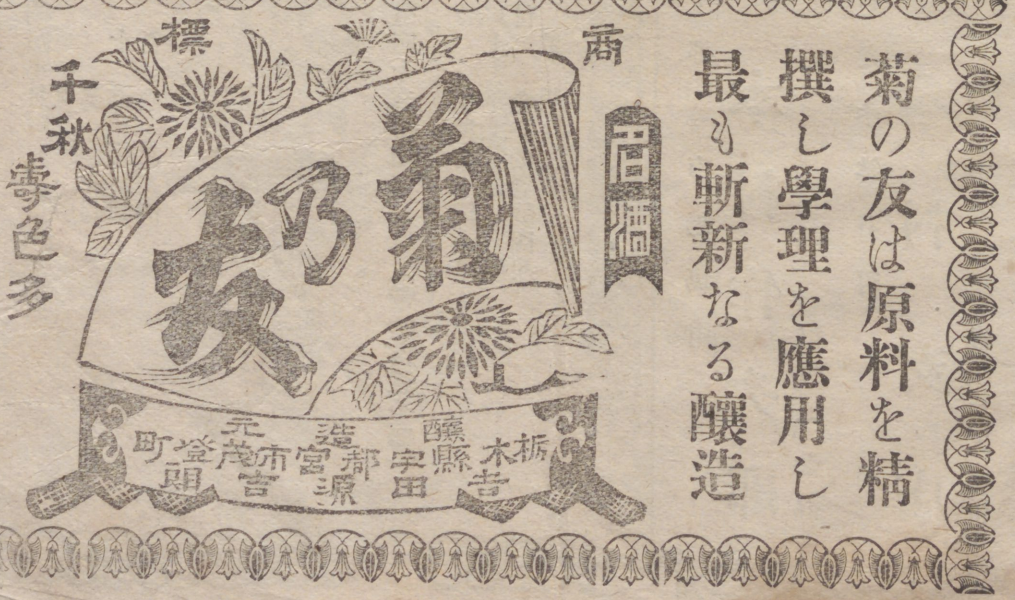 菊の友は原料を精
撰し學理を應用し
最も斬新なる釀造
商標
名酒
菊乃友
千秋
壽色多
釀造元
栃木縣宇都宮市茂登町
吉田源吉